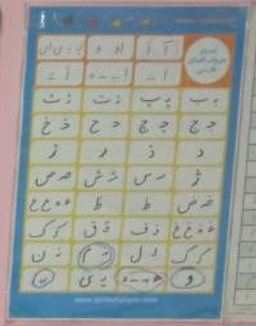 جدول
حروف الفبای
فارسی
آ ا او و
اَ ـَ
بـ ب پـ پ تـ ت ثـ ث
جـ ج چـ چ حـ ح خـ خ
د ذ ر ز
ژ سـ س شـ ش صـ ص
ضـ ض ط ظ عـ ـعـ ـع ع
غـ ـغـ ـغ غ فـ ف قـ ق کـ ک
گـ گ لـ ل مـ م نـ ن
و هـ ـهـ ـه ه یـ ی